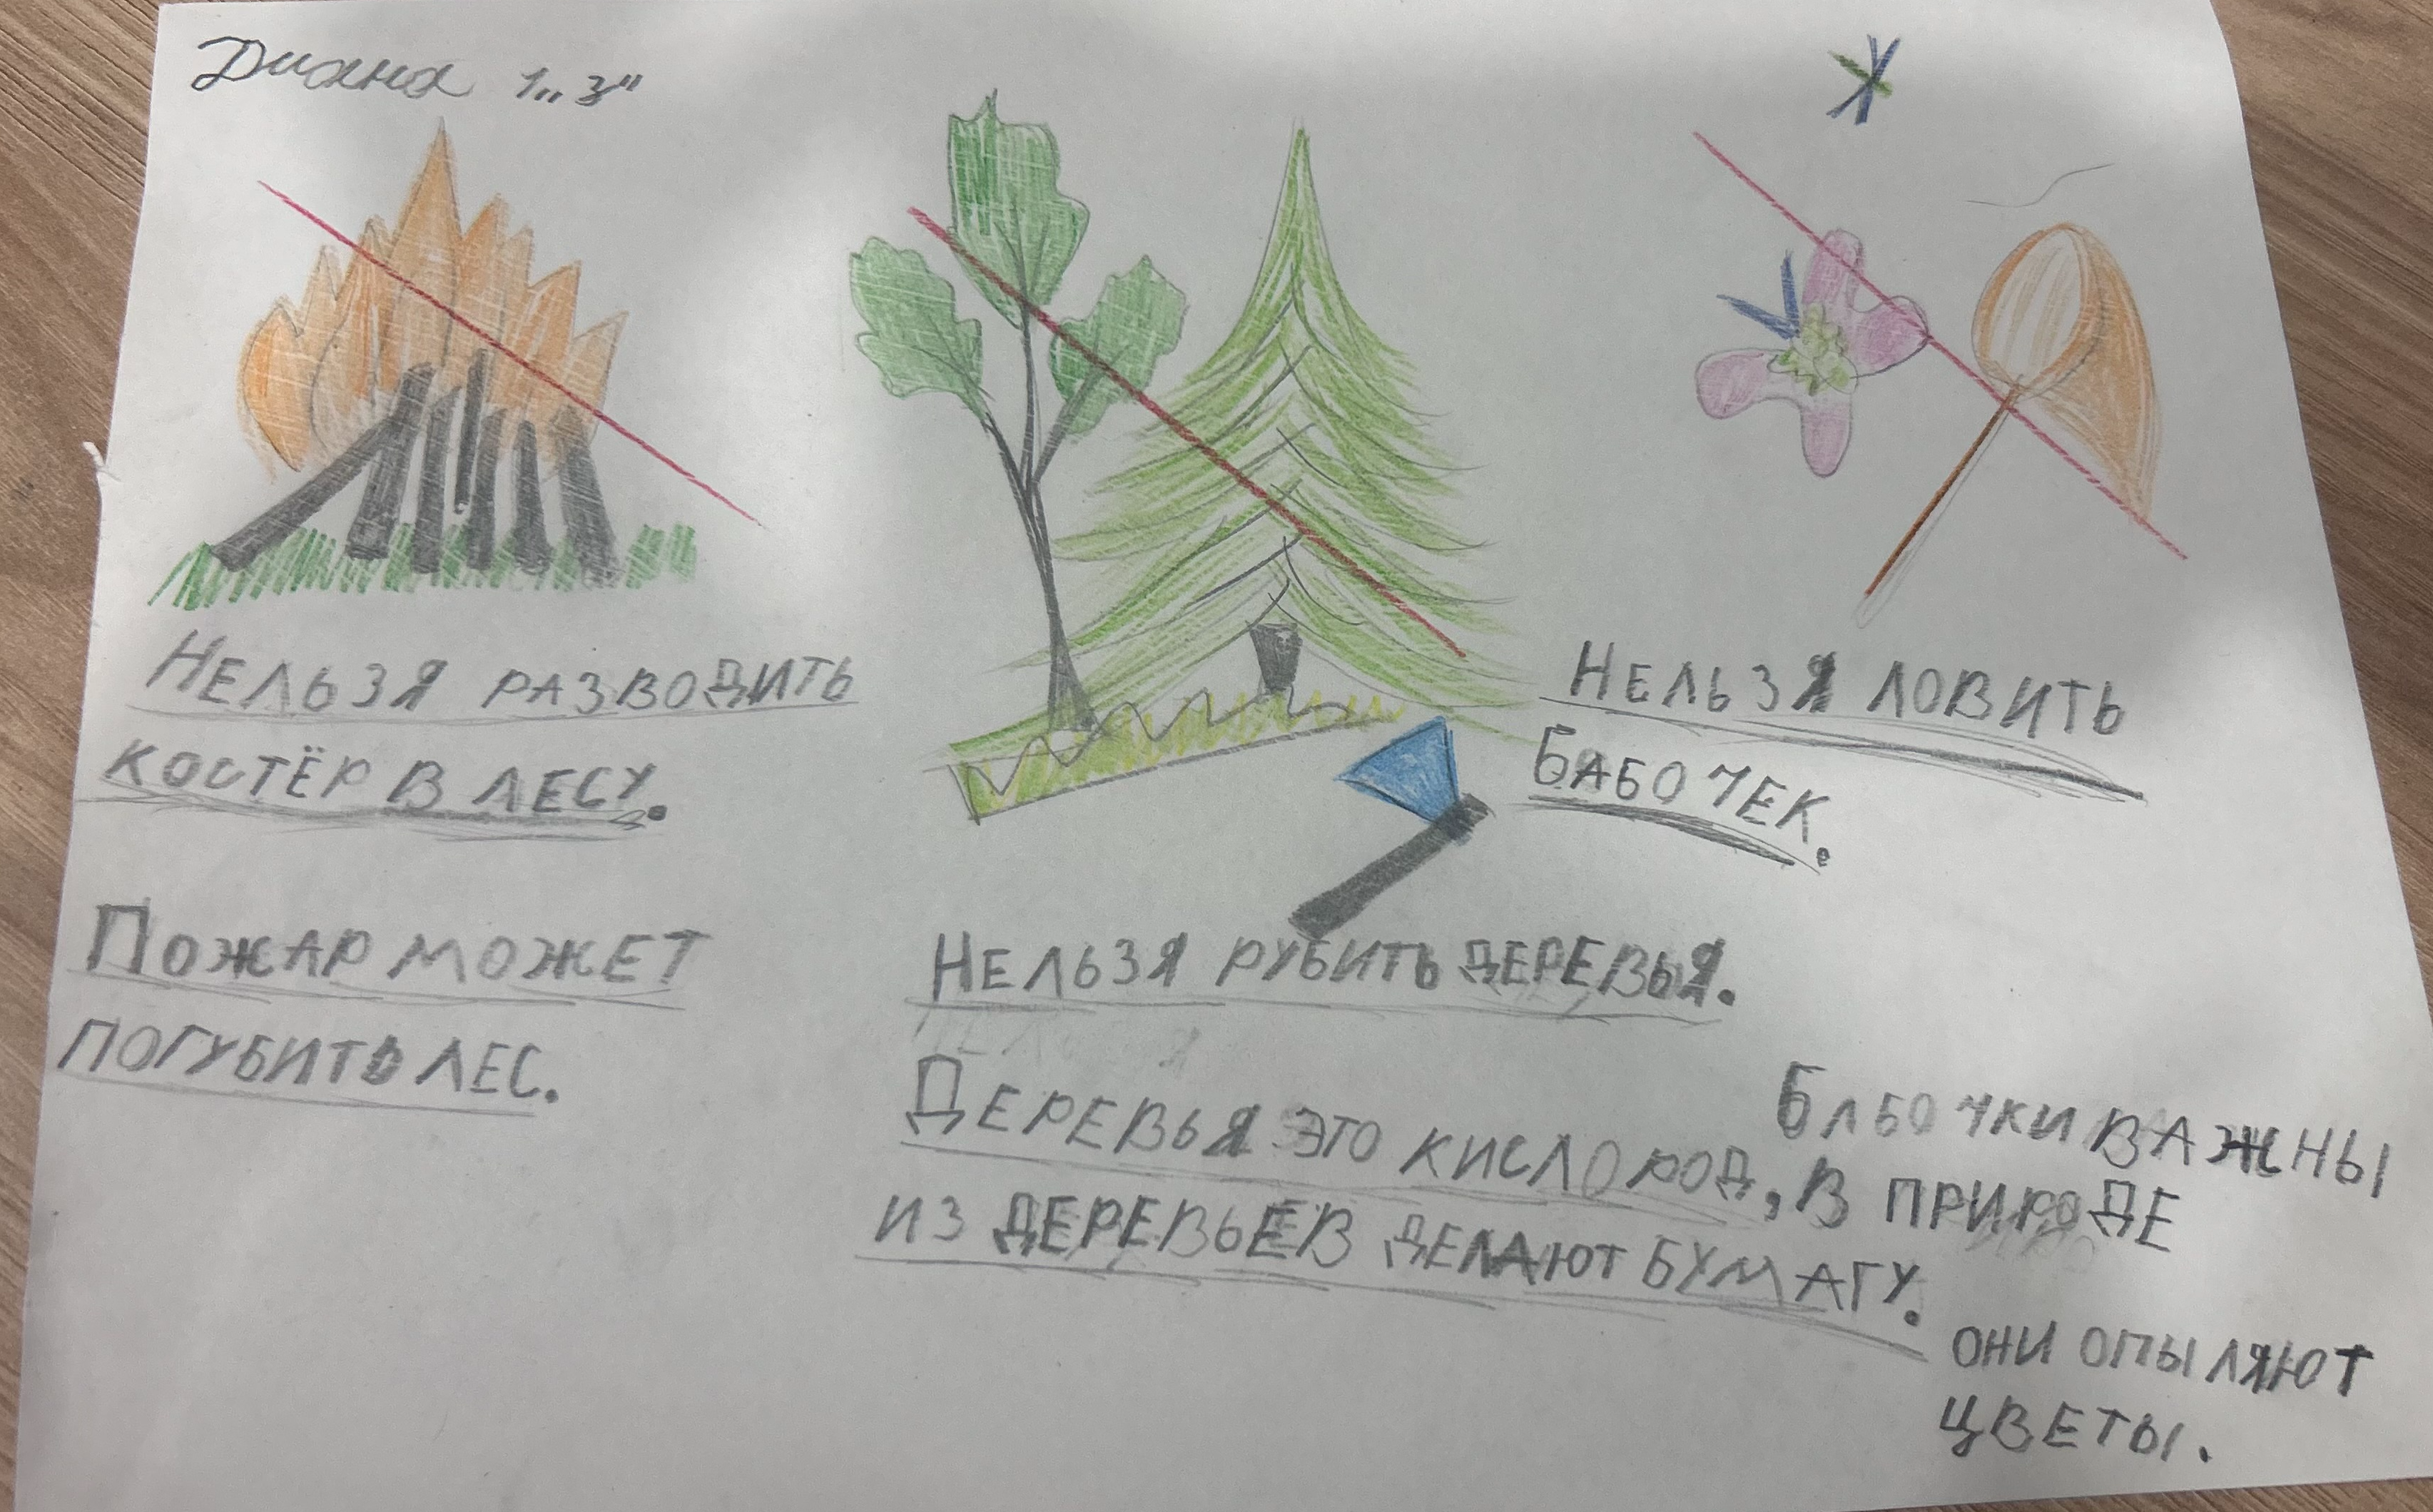 Диана 1„З"
НЕЛЬЗЯ РАЗВОДИТЬ
КОСТЁР В ЛЕСУ.
ПОЖАР МОЖЕТ
ПОГУБИТЬ ЛЕС.
НЕЛЬЗЯ РУБИТЬ ДЕРЕВЬЯ.
ДЕРЕВЬЯ ЭТО КИСЛОРОД,
ИЗ ДЕРЕВЬЕВ ДЕЛАЮТ БУМАГУ.
НЕЛЬЗЯ ЛОВИТЬ
БАБОЧЕК.
БАБОЧКИ ВАЖНЫ
В ПРИРОДЕ
ОНИ ОПЫЛЯЮТ
ЦВЕТЫ.